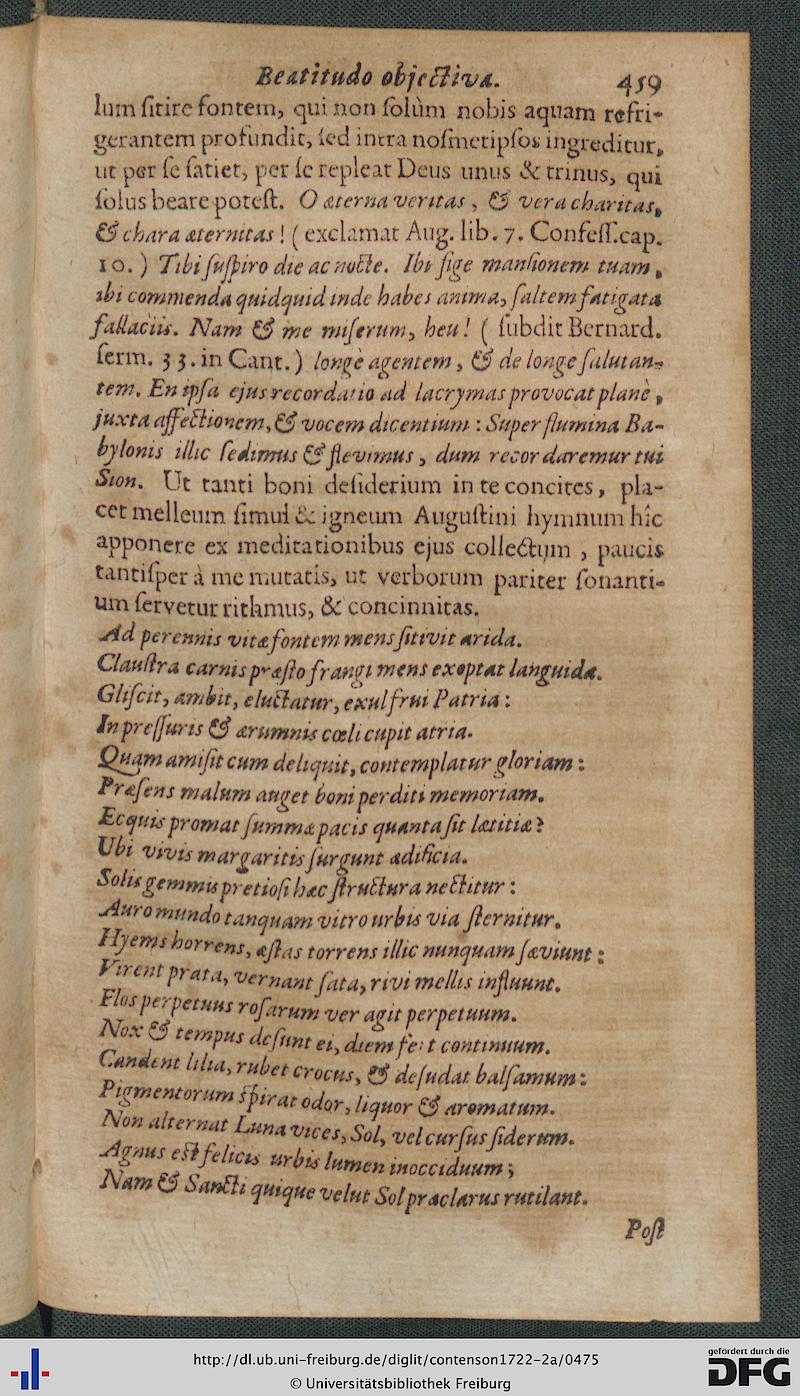 Beatitudo objectiva. 459
lum sitire fontem, qui non solùm nobis aquam refri-
gerantem profundit, sed intra nosmetipsos ingreditur,
ut per se satiet, per se repleat Deus unus & trinus, qui
solus beare potest. O æterna veritas, & vera charitas,
& chara æternitas! (exclamat Aug. lib. 7. Confess. cap.
10.) Tibi suspiro die ac nocte. Ibi fige mansionem tuam,
ibi commenda quidquid inde habes anima, saltem fatigata
fallaciis. Nam & me miserum, heu! (subdit Bernard.
serm. 33. in Cant.) longè agentem, & de longe salutan-
tem. En ipsa ejus recordatio ad lacrymas provocat planè,
juxta affectionem, & vocem dicentium: Super flumina Ba-
bylonis illic sedimus & flevimus, dum recordaremur tui
Sion. Ut tanti boni desiderium in te concites, pla-
cet melleum simul & igneum Augustini hymnum hîc
apponere ex meditationibus ejus collectum, paucis
tantisper à me mutatis, ut verborum pariter sonanti-
um servetur rithmus, & concinnitas.
Ad perennis vitæ fontem mens sitivit arida.
Claustra carnis præsto frangi mens exoptat languida.
Gliscit, ambit, eluctatur, exul frui Patria:
In pressuris & ærumnis cœli cupit atria.
Quam amisit cum deliquit, contemplatur gloriam:
Præsens malum auget boni perditi memoriam.
Ecquis promat summæ pacis quanta sit lætitiæ?
Ubi vivis margaritis surgunt ædificia.
Solis gemmis pretiosi hæc structura nectitur:
Auro mundo tanquam vitro urbis via sternitur.
Hyems horrens, æstas torrens illic nunquam sæviunt:
Virent prata, vernant sata, rivi mellis influunt.
Flos perpetuus rosarum ver agit perpetuum.
Nox & tempus desunt ei, diem fert continuum.
Candent lilia, rubet crocus, & desudat balsamum:
Pigmentorum spirat odor, liquor & aromatum.
Non alternat Luna vices, Sol, vel cursus siderum.
Agnus est felicis urbis lumen inocciduum;
Nam & Sancti quique velut Sol præclarus rutilant.
Post
http://dl.ub.uni-freiburg.de/diglit/contenson1722-2a/0475
© Universitätsbibliothek Freiburg
gefördert durch die
DFG